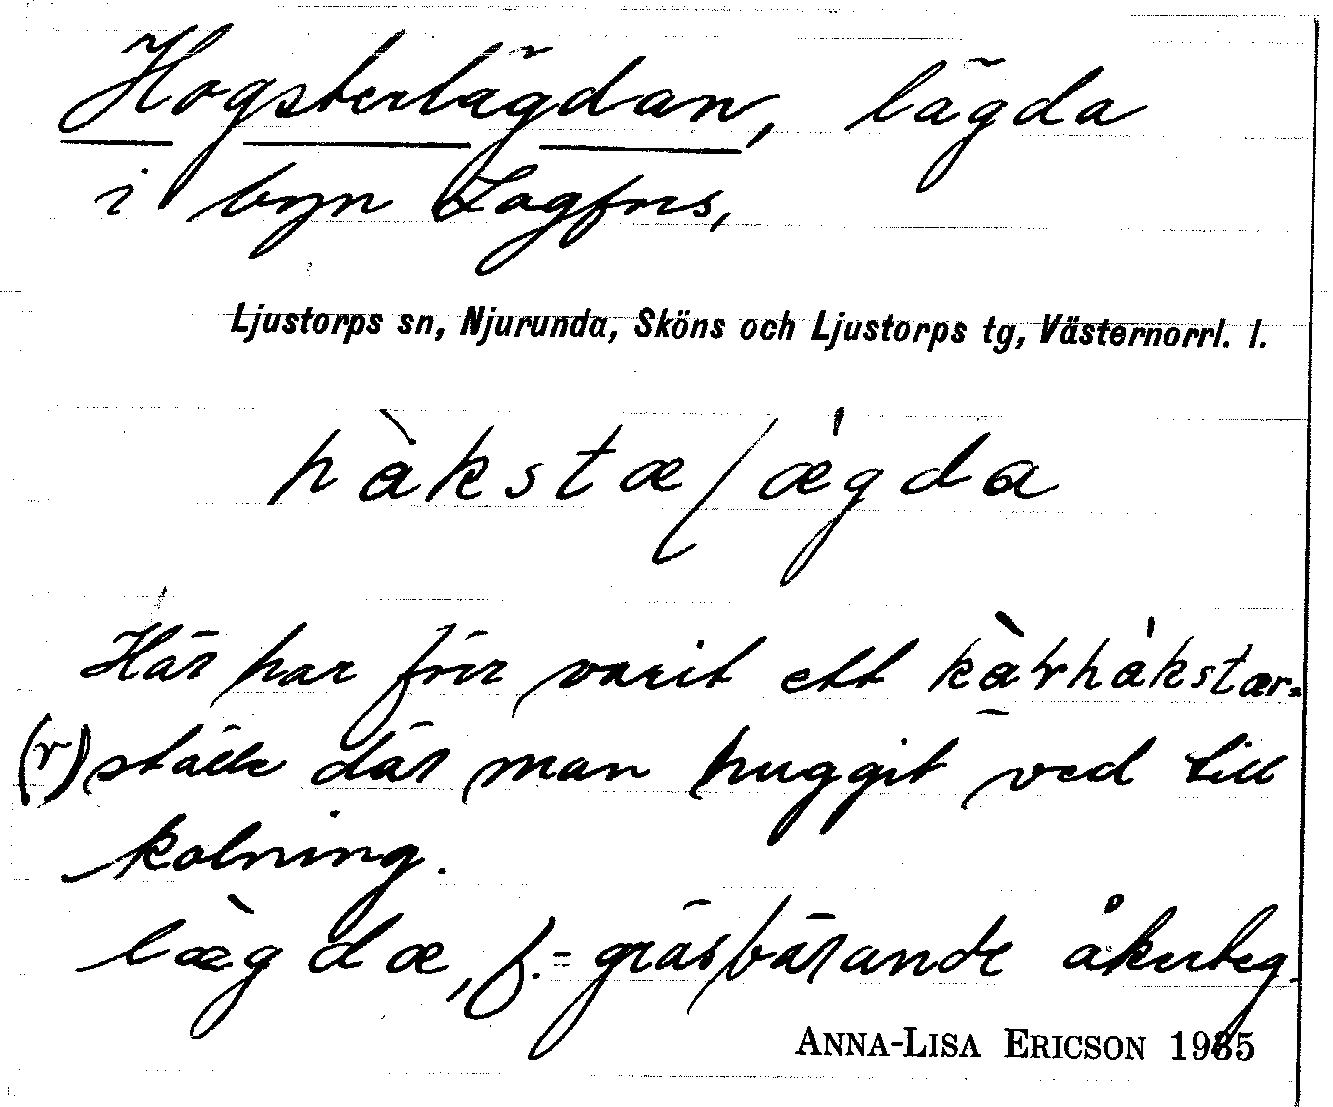 Hogsterlägdan, lägda
i byn Lagfors,
Ljustorps sn, Njurunda, Sköns och Ljustorps tg, Västernorrl. l.
hàkstælǽgda
Här har förr varit ett kàrhákstær-
(r) ställe där man huggit ved till
kolning.
læ̀gdæ, f. = gräsbärande åkerteg.
ANNA-LISA ERICSON 1935